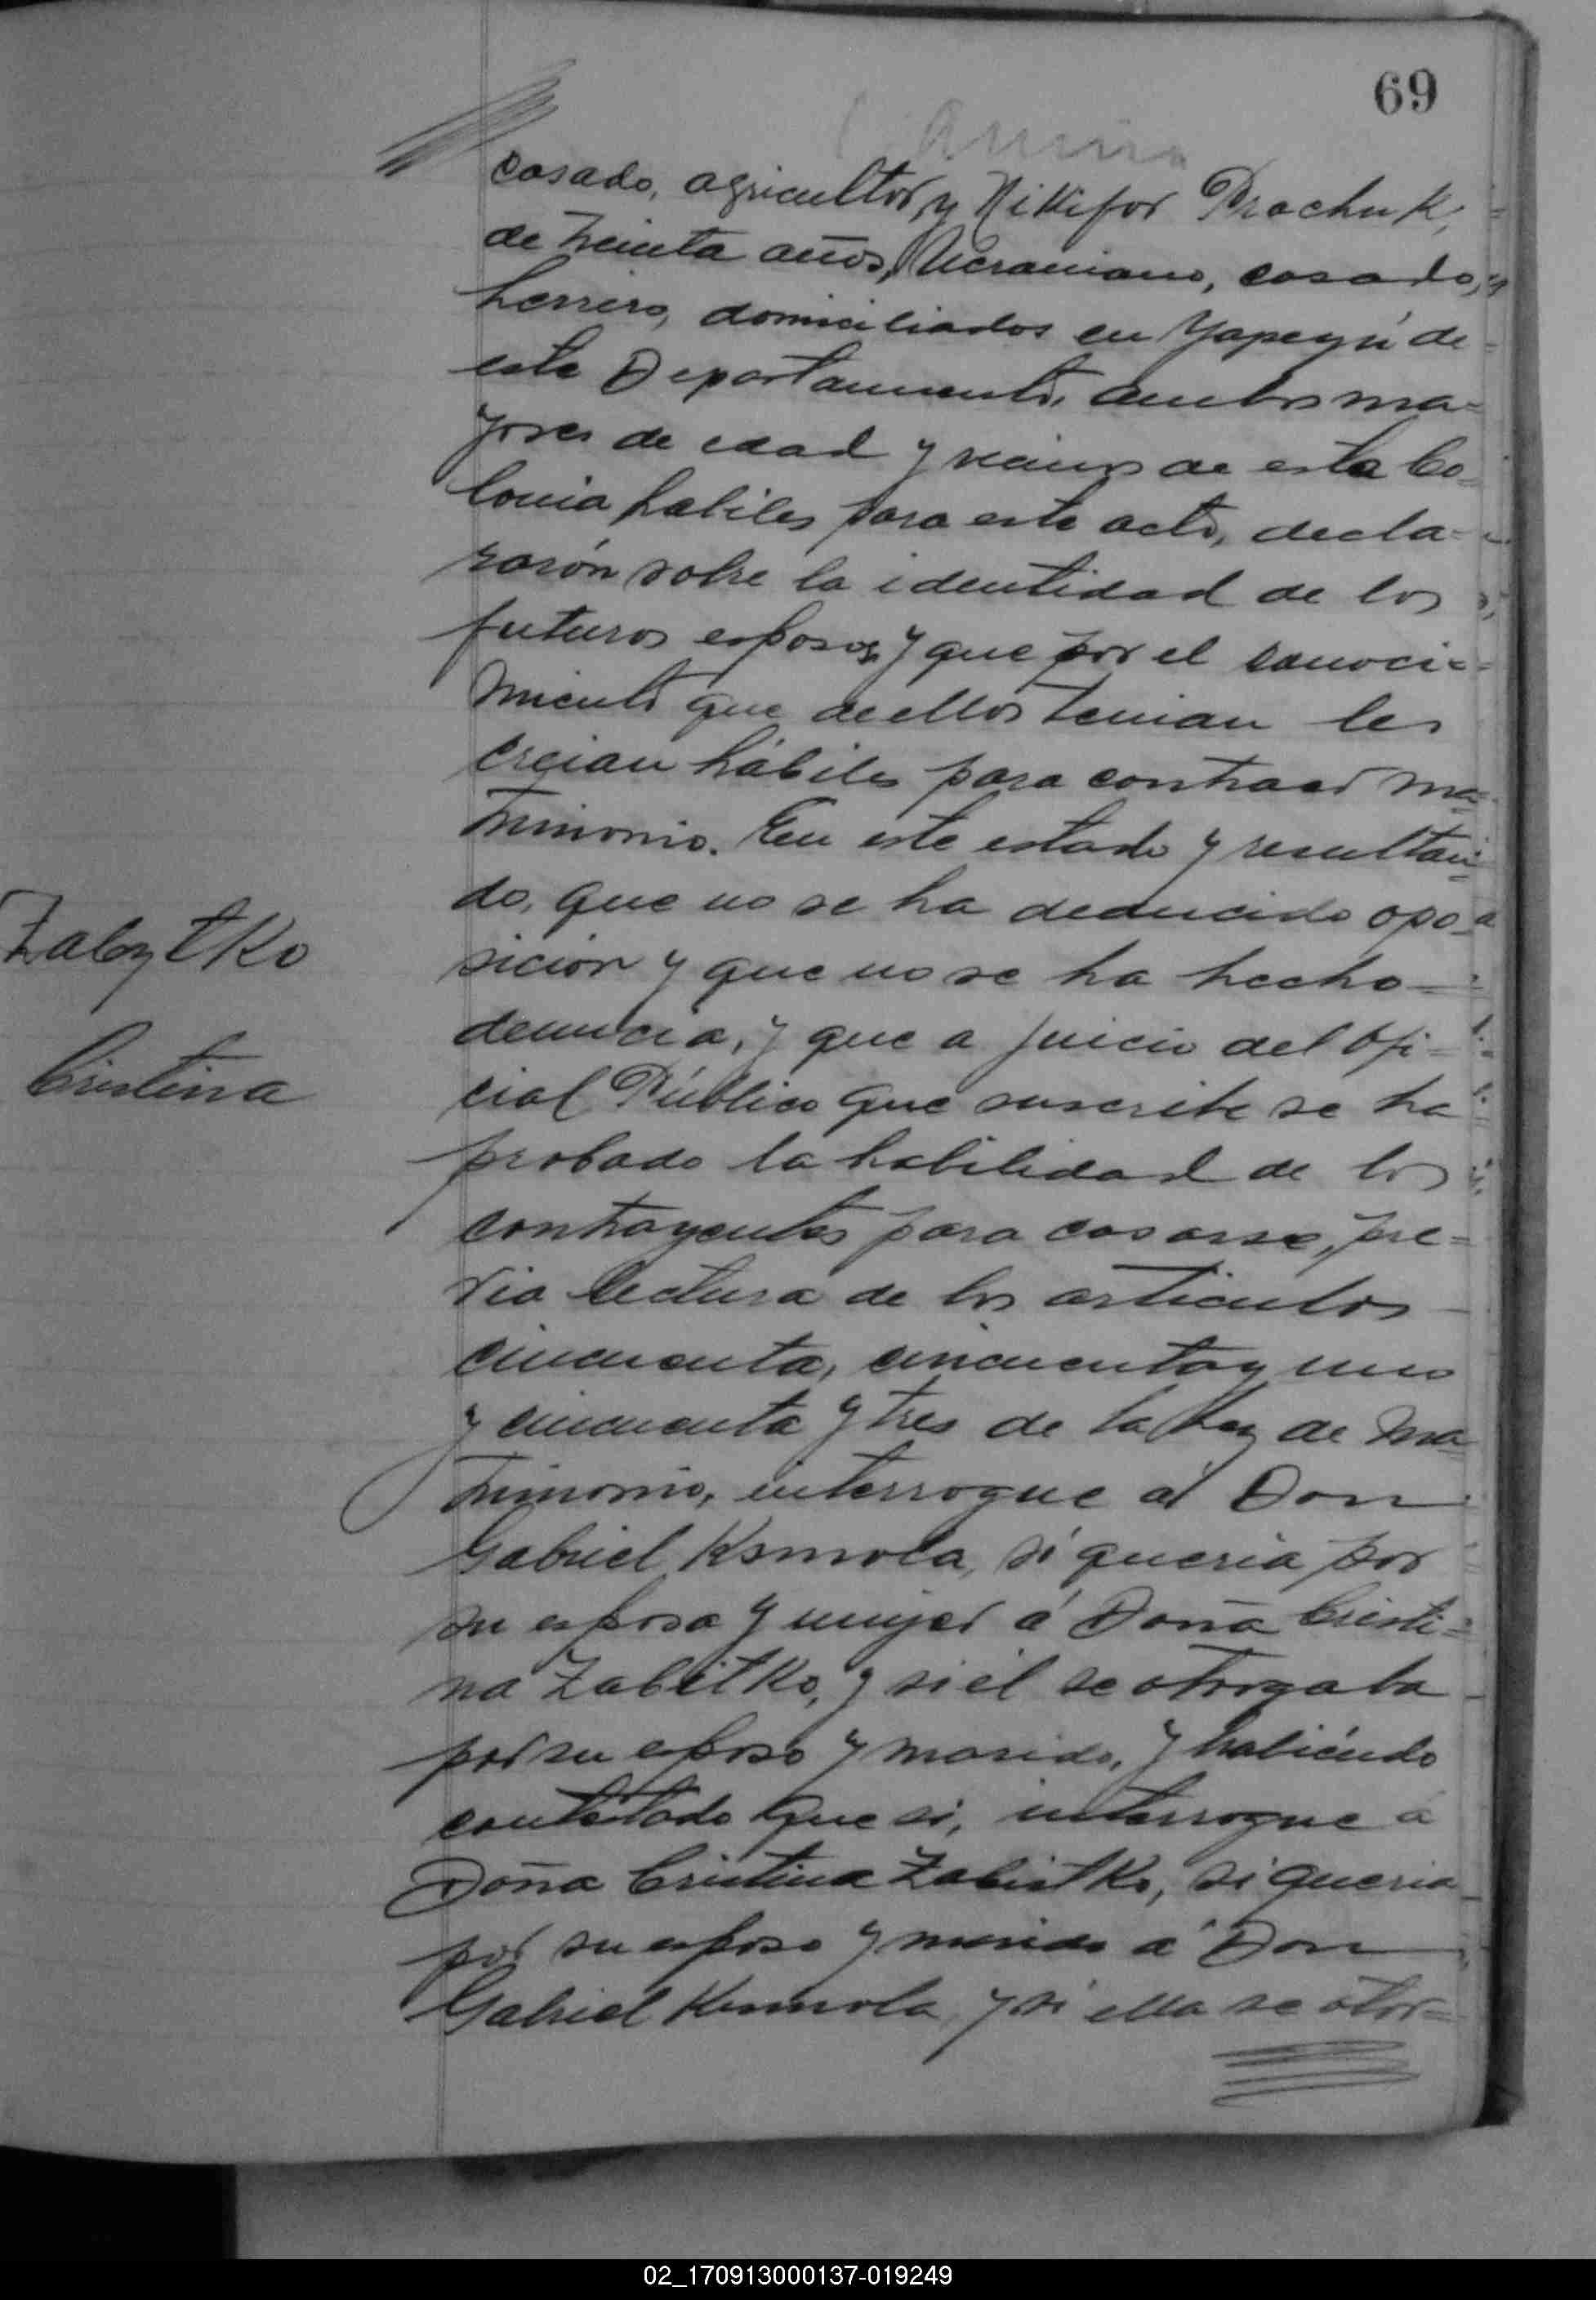 69
casado, agricultor, y Nikifor Prachuk,
de treinta años, Ucraniano, casado,
herrero, domiciliados en Yapeyú de
este Departamento, ambos ma=
yores de edad y vecinos de esta Co=
lonia habiles para este acto, decla=
rarón sobre la identidad de los
futuros esposos y que por el conoci=
miento que de ellos tenian les
creian hábiles para contraer ma=
trimonio. En este estado y resultan=
do, que no se ha deducido opo=
sicion y que no se ha hecho
denuncia, y que a juicio del Ofi=
cial Público que suscribe se ha
probado la habilidad de los
contrayentes para casarse, pre=
via lectura de los articulos
cincuenta, cincuenta y uno
y cincuenta y tres de la Ley de Ma=
trimonio, interrogue á Don
Gabriel, si queria por
su esposa y mujer á Doña Cristi=
na Zabitko, y si él se otorgaba
por su esposo y marido, y habiéndo
contestado que si, interrogue a
Doña Cristina Zabitko, si queria
por su esposo y marido a Don
Gabriel, y si ella se otor=
Zabytko
Cristina
02_170913000137-019249